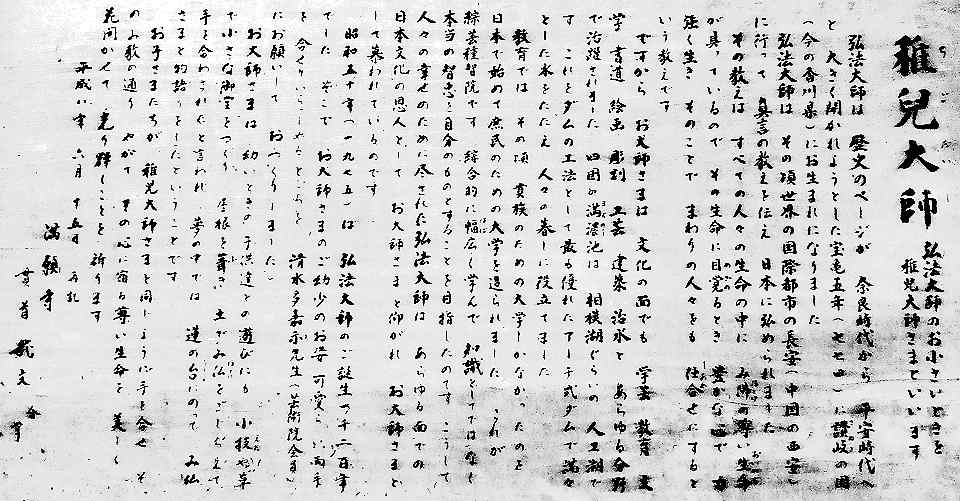 稚児大師
弘法大師のお小さいときを
稚児大師さまといいます
弘法大師は 歴史のページが 奈良時代から 平安時代へ
と 大きく開かれようとした宝亀五年(七七四)に讃岐の国
(今の香川県)にお生まれになりました
弘法大師は その頃世界の国際都市の長安(中国の西安)
に行って 真言の教えを伝え 日本に弘められました
その教えは すべての人々の生命の中に み佛の尊い生命
が具っているので その生命に目覚るとき 豊かな心で 力
強く生き そのことで まわりの人々をも 仕合せにすると
いう教えです
ですから お大師さまは 文化の面でも 学芸 教育 文
学 書道 絵画 彫刻 工芸 建築 治水と あらゆる分野
で活躍されました 四国の満濃池は 相模湖ぐらいの 人工湖で
す これをダムの工法として最も優れたアーチ式ダムで満々
とした水をたたえ 人々の暮しに役立てました
教育では その頃 貴族のための大学しかなかったのを
日本で始めて庶民のための大学を造られました これが
綜芸種智院です 綜合的に幅広く学んで 知識としてではなく
本当の智恵を自分のものとすることを目指したのです こうして
人々の幸せのために尽された弘法大師は あらゆる面での
日本文化の恩人として お大師さまと仰がれ お大師さまと
して慕われているのです
昭和五十年(一九七五)は 弘法大師のご誕生の千二百年
でした そこで お大師さまのご幼少のお姿 可愛らしい両手
を 合せていらっしゃるところを 清水多嘉示先生(芸術院会員)
にお願いして おつくりしました
お大師さまは 幼いときの子供達との遊びにも 小枝や草
で小さな御堂をつくり 屋根を葺き 土でみ仏をこしらえて
手を合わされたと言われ 夢の中では 蓮の台にのって み仏
さまと物語りをしたということです
お子さまたちが 稚児大師さまと同じように手を合せ そ
のみ教の通り やがて その心に宿る尊い生命を 美しく
花開かせて 光り輝くことを 祈ります
平成八年 六月 十五日
満願寺
貫首 龍文